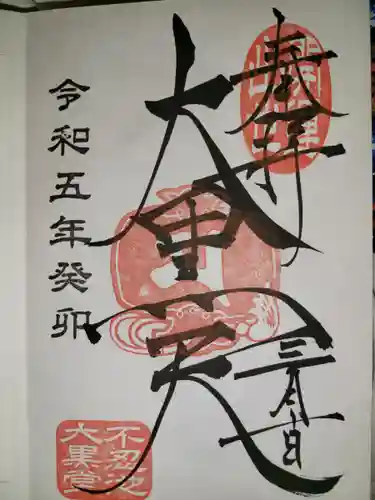 奉拝
開運
出世
三月十日
大黒天
令和五年癸卯
不忍池
大黒堂